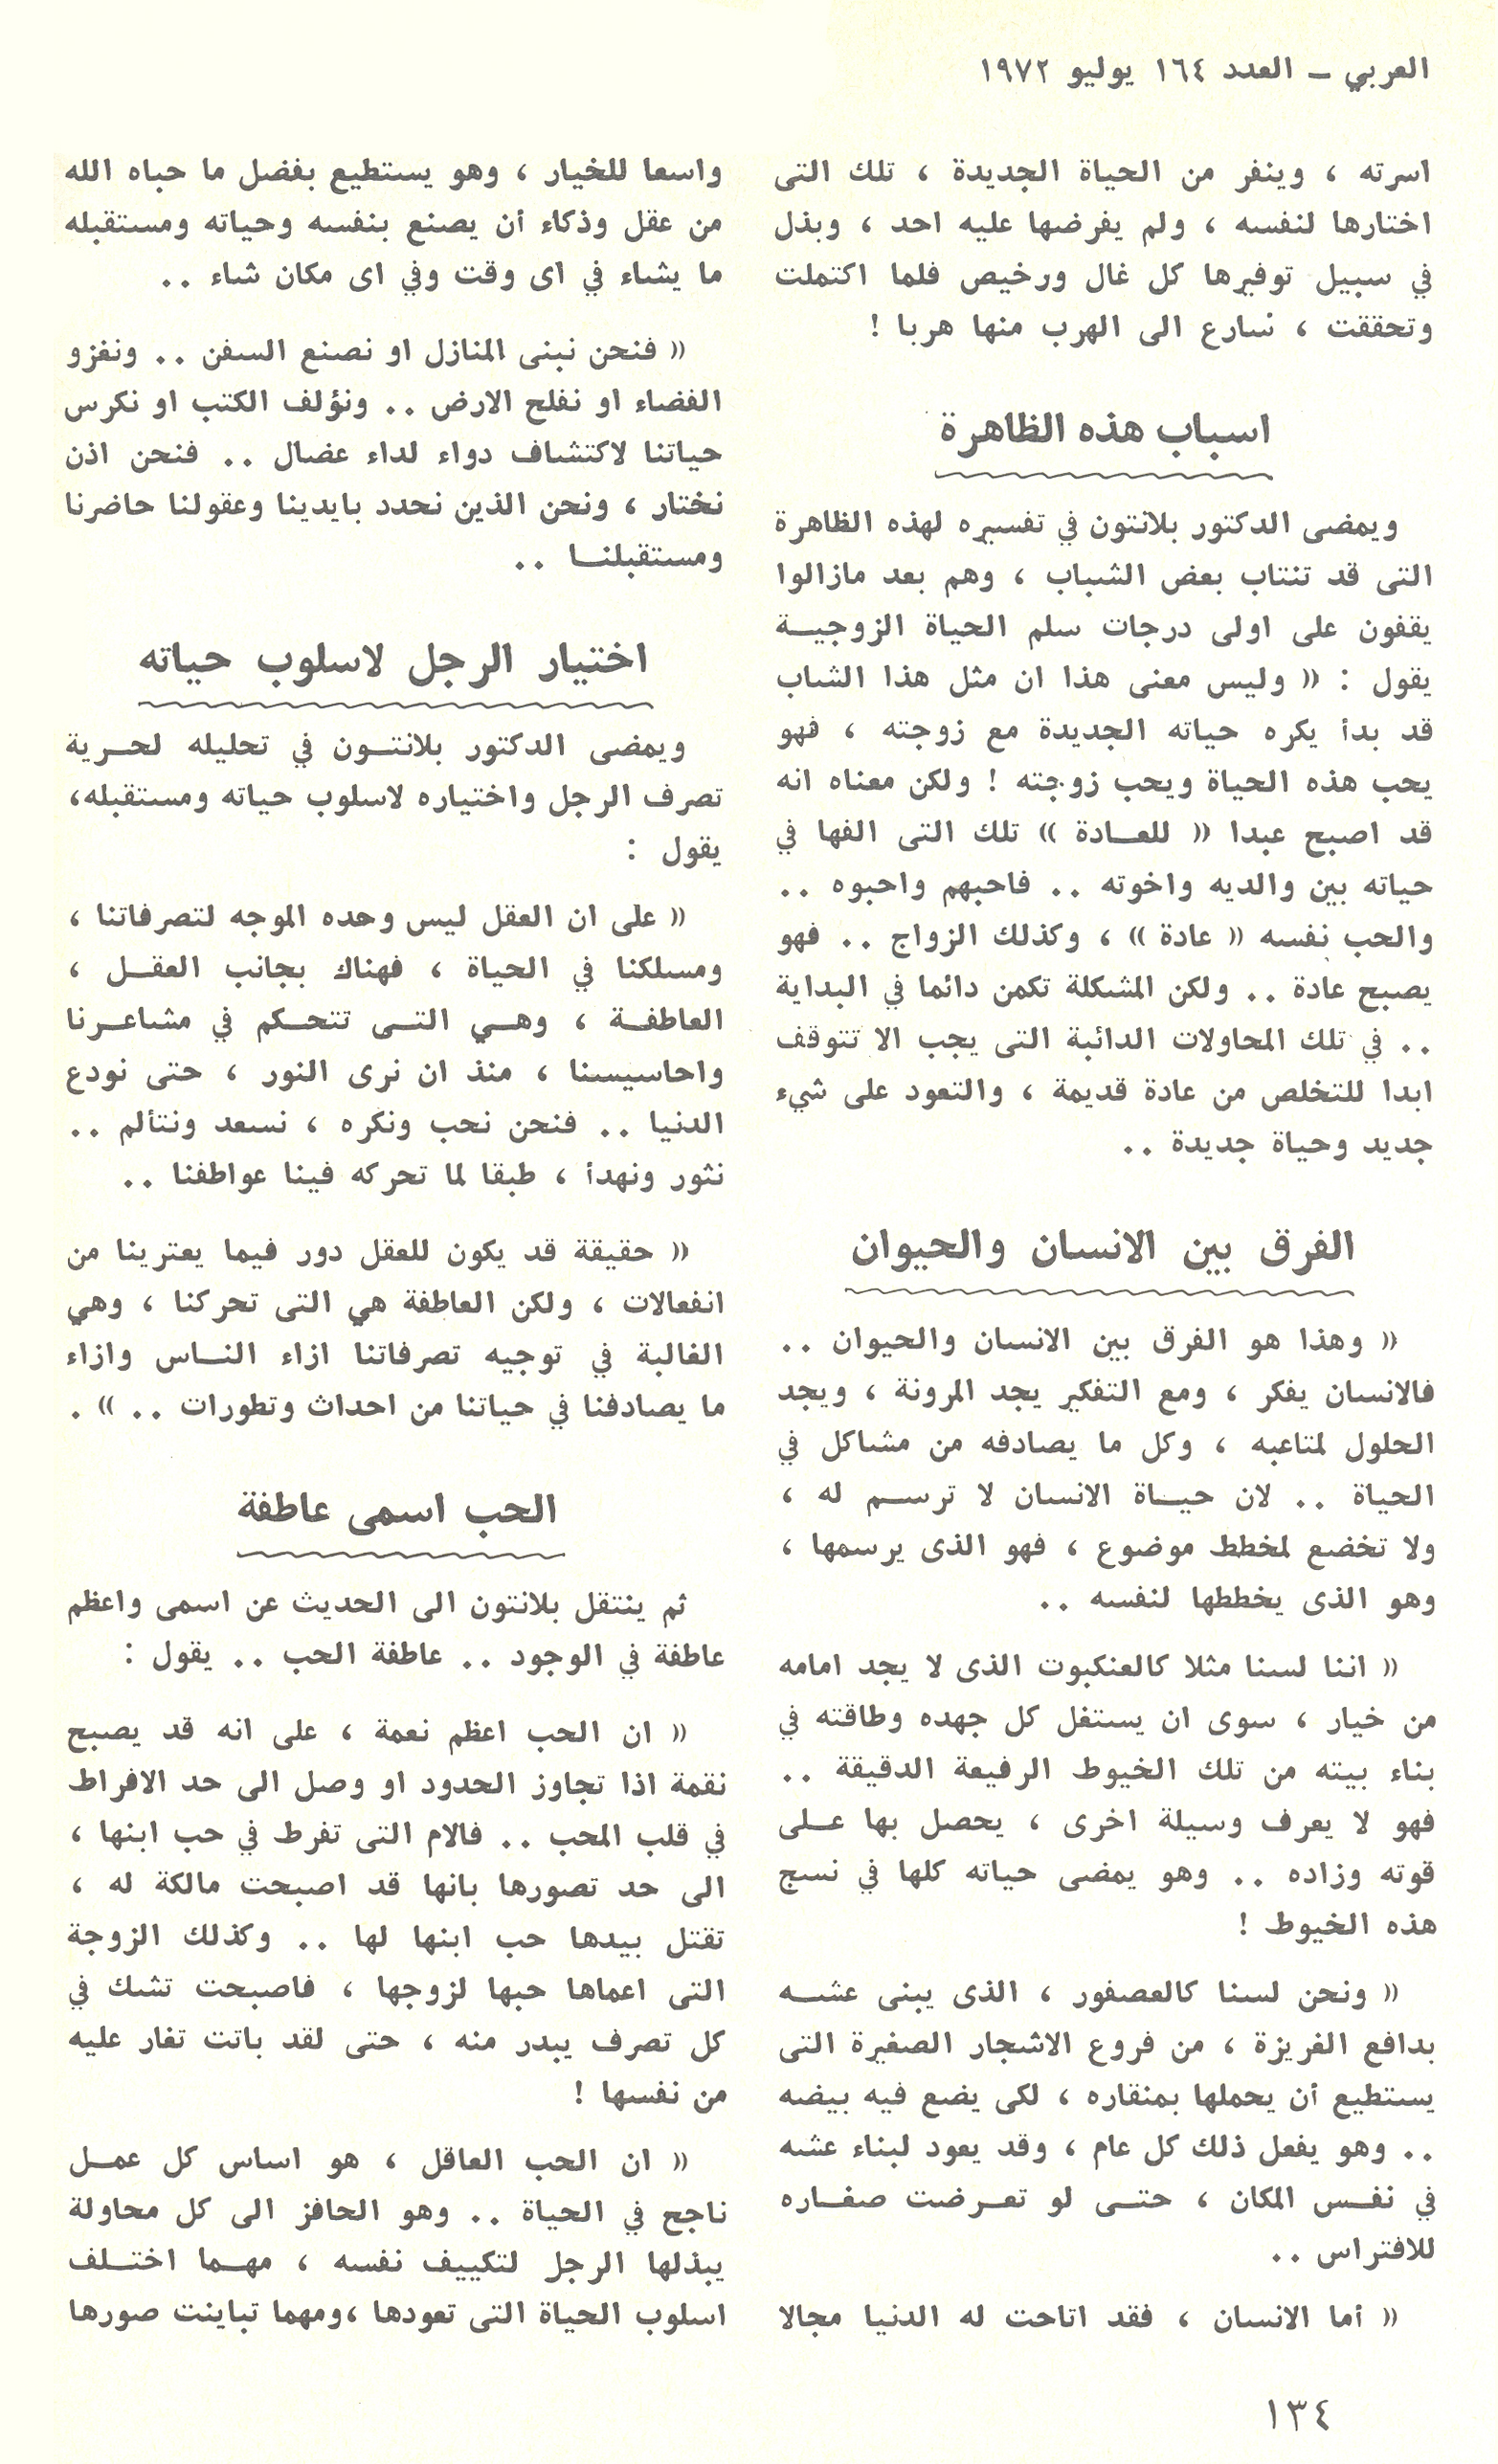 العربي – العدد ١٦٤ يوليو ١٩٧٢
اسرته ، وينفر من الحياة الجديدة ، تلك التى
اختارها لنفسه ، ولم يفرضها عليه احد ، وبذل
في سبيل توفيرها كل غال ورخيص فلما اكتملت
وتحققت ، نسارع الى الهرب منها هربا !
اسباب هذه الظاهرة
ويمضى الدكتور بلانتون في تفسيره لهذه الظاهرة
التى قد تنتاب بعض الشباب ، وهم بعد مازالوا
يقفون على اولى درجات سلم الحياة الزوجيـة
يقول : « وليس معنى هذا ان مثل هذا الشاب
قد بدأ يكره حياته الجديدة مع زوجته ، فهو
يحب هذه الحياة ويحب زوجته ! ولكن معناه انه
قد اصبح عبدا « للعـادة » تلك التى الفها في
حياته بين والديه واخوته .. فاحبهم واحبوه ..
والحب نفسه « عادة » ، وكذلك الزواج .. فهو
يصبح عادة .. ولكن المشكلة تكمن دائما في البداية
.. في تلك المحاولات الدائبة التى يجب الا تتوقف
ابدا للتخلص من عادة قديمة ، والتعود على شيء
جديد وحياة جديدة ..
الفرق بين الانسان والحيوان
« وهذا هو الفرق بين الانسان والحيوان ..
فالانسان يفكر ، ومع التفكير يجد المرونة ، ويجد
الحلول لمتاعبه ، وكل ما يصادفه من مشاكل في
الحياة .. لان حيـاة الانسان لا ترسـم له ،
ولا تخضع لمخطط موضوع ، فهو الذى يرسمها ،
وهو الذى يخططها لنفسه ..
« اننا لسنا مثلا كالعنكبوت الذى لا يجد امامه
من خيار ، سوى ان يستغل كل جهده وطاقته في
بناء بيته من تلك الخيوط الرفيعة الدقيقة ..
فهو لا يعرف وسيلة اخرى ، يحصل بها عـلى
قوته وزاده .. وهو يمضى حياته كلها في نسج
هذه الخيوط !
« ونحن لسنا كالعصفور ، الذى يبنى عشـه
بدافع الغريزة ، من فروع الاشجار الصغيرة التى
يستطيع أن يحملها بمنقاره ، لكى يضع فيه بيضه
.. وهو يفعل ذلك كل عام ، وقد يعود لبناء عشه
في نفـس المكان ، حتـى لو تعـرضت صغـاره
للافتراس ..
« أما الانسان ، فقد اتاحت له الدنيا مجالا
واسعا للخيار ، وهو يستطيع بفضل ما حباه الله
من عقل وذكاء أن يصنع بنفسه وحياته ومستقبله
ما يشاء في اى وقت وفي اى مكان شاء ..
« فنحن نبنى المنازل او نصنع السفن .. ونغزو
الفضاء او نفلح الارض .. ونؤلف الكتب او نكرس
حياتنا لاكتشاف دواء لداء عضال .. فنحن اذن
نختار ، ونحن الذين نحدد بايدينا وعقولنا حاضرنا
ومستقبلنـا ..
اختيار الرجل لاسلوب حياته
ويمضى الدكتور بلانتـون في تحليله لحـرية
تصرف الرجل واختياره لاسلوب حياته ومستقبله،
يقول :
« على ان العقل ليس وحده الموجه لتصرفاتنا ،
ومسلكنا في الحياة ، فهناك بجانب العقـل ،
العاطفـة ، وهـي التـى تتحـكم في مشاعـرنا
واحاسيسنا ، منذ ان نرى النور ، حتى نودع
الدنيا .. فنحن نحب ونكره ، نسعد ونتألم ..
نثور ونهدأ ، طبقا لما تحركه فينا عواطفنا ..
« حقيقة قد يكون للعقل دور فيما يعترينا من
انفعالات ، ولكن العاطفة هي التى تحركنا ، وهي
الغالبة في توجيه تصرفاتنا ازاء النـاس وازاء
ما يصادفنا في حياتنا من احداث وتطورات .. » .
الحب اسمى عاطفة
ثم ينتقل بلانتون الى الحديث عن اسمى واعظم
عاطفة في الوجود .. عاطفة الحب .. يقول :
« ان الحب اعظم نعمة ، على انه قد يصبح
نقمة اذا تجاوز الحدود او وصل الى حد الافراط
في قلب المحب .. فالام التى تفرط في حب ابنها ،
الى حد تصورها بانها قد اصبحت مالكة له ،
تقتل بيدها حب ابنها لها .. وكذلك الزوجة
التى اعماها حبها لزوجها ، فاصبحت تشك في
كل تصرف يبدر منه ، حتى لقد باتت تغار عليه
من نفسها !
« ان الحب العاقل ، هو اساس كل عمـل
ناجح في الحياة .. وهو الحافز الى كل محاولة
يبذلها الرجل لتكييف نفسه ، مهـما اختـلف
اسلوب الحياة التى تعودها ،ومهما تباينت صورها
١٣٤